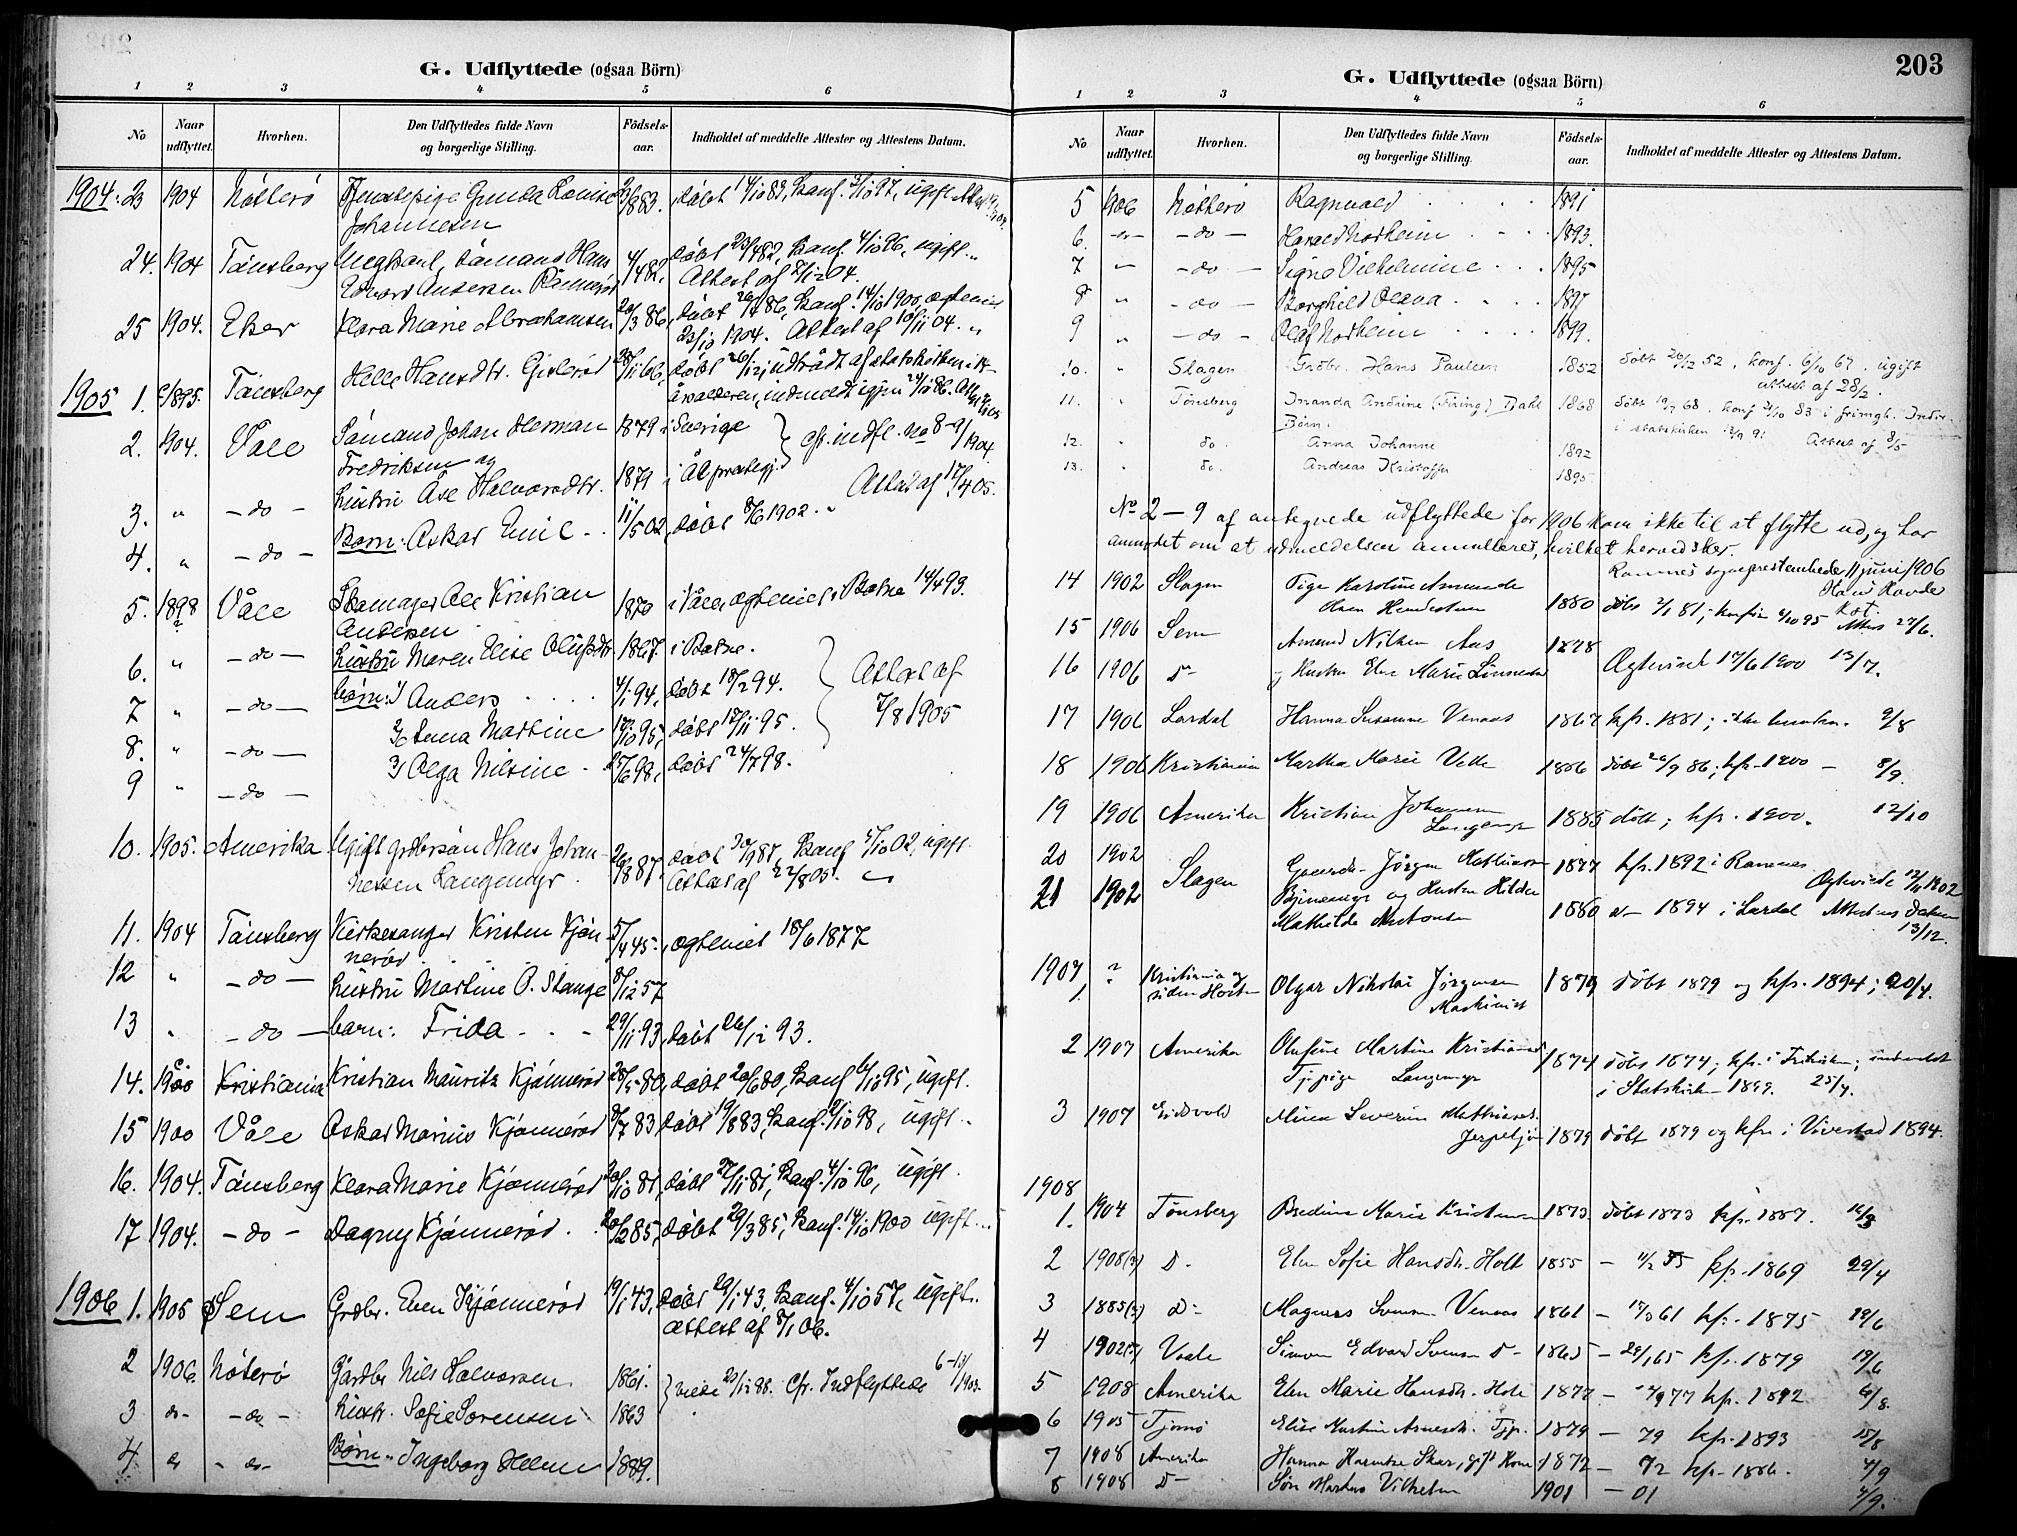 G. Udflyttede (ogsaa Börn)
1 2 3 4 5 6
No
Naar udflyttet.
Hvorhen.
Den Udflyttedes fulde Navn og borgerlige Stilling.
Födsels-aar.
Indholdet af meddelte Attester og Attestens Datum.
1904: 23 1904 Nötterö Tjenestepige Gunda Lovise 1883. döbt 14/10 83, konf. 3/10 97, ugift
Johannesen
24. 1904 Tönsberg Ungkarl, sömand Hans 4/4 82, döbt 23/4 82, konf. 4/10 96, ugift
Edvard Andersen Attest af 8/12 04.
25 1904. Eker Klara Marie Abrahamsen 20/3 86, döbt 26/4 86, konf. 14/10 1900, ægteviet
23/10 1904. Attest af 10/11 04.
1905 1. 1895. Tönsberg Helle Hansdtr. Gislerød 28/11 66, döbt 26/12, udtrådt af statskirken i
indmeldt igjen
2. 1904. Våle Sömand Johan Herman 1879 i Sverige cfr. indfl. No 8-9/1904.
Fredriksen og
3. " - do - hustru Åse Halvorsdtr. 1871 i Ål prestegj. Attest af 17/4 05.
4. " - do - Barn: Oskar Emil - 11/5 02, döbt 8/6 1902.
5. 1898 Våle Skomager Ole Kristian 1870 i Våle, ægteviet i Botne 14/4 93.
? Andersen
6. " - do - hustru Maren Elise Olufsdtr. 1867. i Botne.
7 " - do - börn: 1) Anders 4/1 94, döbt 18/2 94. Attest af
8. " - do - 2) Anna Martine 17/10 95, döbt 17/11 95. 7/8 1905
9 " - do - 3) Olga Nilsine - 25/6 98, döbt 24/7 98.
10. 1905. Amerika Ugift grdbrsön Hans Johan- 26/8 87. döbt 30/9 87, konf. 5/10 02, ugift.
nessen Langemyr. Attest af 22/8 05.
11. 1904 Tönsberg Kirkesanger Kristen Kjön- 5/4 45. ægteviet 18/6 1877
nerød
12 " - do - hustru Martine O. Stange 8/12 57
13 " - do - barn: Frida - - 29/11 93, döbt 26/12 93.
14. 1900 Kristiania Kristian Mauritz Kjönnerød 28/5 80, döbt 20/6 80, konf. 6/10 95, ugift.
15 1900 Våle Oskar Marius Kjönnerød 8/7 83 döbt 19/8 83, konf. 9/10 98, ugift.
16. 1904. Tönsberg Klara Marie Kjönnerød 20/10 81, döbt 27/11 81, konf. 4/10 96, ugift.
17 1904. - do - Dagny Kjönnerød. 20/2 85, döbt 29/3 85, konf. 14/10 1900 ugift...
1906 1. 1905 Sem Grdbr. Even Kjönnerød 19/1 43, döbt 29/1 43, konf. 4/10 57, ugift..
attest af 8/1 06.
2 1906. Nöterö Gårdbr Nils Halvorsen 1861. viede 23/12 88. Cfr. Indflyttede 6-13/1903.
3 do- - do - hustr. Sofie Sørensen 1863
4. do - do- Börn: Ingeborg Helene 1889.
203
G. Udflyttede (ogsaa Börn)
1 2 3 4 5 6
No
Naar udflyttet.
Hvorhen.
Den Udflyttedes fulde Navn og borgerlige Stilling.
Födsels-aar.
Indholdet af meddelte Attester og Attestens Datum.
5 1906 Nötterö Ragnvald 1891
6. - do - Harald Norheim 1893.
7 " - do - Signe Vilhelmine 1895
8 " - do - Borghild Olava 1897
9 " - do - Olaf Norheim 1899.
10. " Slagen Grdbr. Hans Paulsen 1852 döbt 26/12 52, konf. 6/10 67, ugift
attest af 28/2.
11. " Tønsberg Inanda Andrine (Firing) Dahl 1868 döbt 19/7 68. konf 7/10 83 i frimgh.
Børn. i statskirken 13/9 91 Attest af 8/5
12. " do. Anna Johanne 1892
13. " do. Andreas Kristoffer 1895
No 2-9 af antegnede udflyttede for 1906 kom ikke til at flytte ud, og har
anmodet om at udmeldelsen annulleres, hvilket herved sker.
Ramnes sogneprestembede, 11 juni 1906
14 1902 Slagen Pige Karoline Amunda 1880 döbt 2/1 81; konfir. 6/10 95 Attest 27/6.
Olsen
15 1906 Sem Amund Nilsen Aas 1828
16 1906 D- og Hustru Else Marie Ægteviet 17/6 1900 13/7.
17 1906 Lardal Hanna Susanne Venaas 1867 kfr. 1881; 9/8
18 1906 Kristiania Martha Marie Vette 1886 döbt 26/9 86; kfr. 1900 - 8/9.
19 1906 Amerika Kristian Johannesen 1885 döbt; kfr. 1900. 12/10
Langemyr
20 1902 Slagen Jörgen Mathiasen 1877 kfr. 1892 i Ramnes Ægteviede 1902
21 1902 og Hustru Hilda
Mathilde 1880 d- 1894 i Lardal Attestens Datum
13/12.
1907
1. ? Kristiania og Olgar Nikolai Jörgensen 1879 döbt 1879 og kfr. 1894; 20/4.
siden Horten Maskinist
2 1907 Amerika Olufine Martine 1874 döbt 1874; kfr. i Frikirken; indmeldt
Tj.pige Langemyr i Statskirken 1899. 25/4.
3 1907 Eidsvold Mina Severine 1879 döbt 1879 og kfr. i Vivestad 1894.
1908
1. 1904 Tønsberg Bredine Marie Kristensen 1873. döbt 1873 kfr. 1887.
2 1908(?) D- Elen Sofie Hansdtr. Holt 1855 - 11/2 55 kfr. 1869 29/4
3 1885(?) D- Magnus Svensen Venaas 1861 - 17/3 61 kfr. - 1875 19/6
4 1902(?) Vaale Simon Edvard Svensen D- 1865 - 29/1 65 kfr. 1879 19/6
5 1908 Amerika Elen Marie Hansdtr. 1877 - 77 kfr. 1892 6/8.
6 1905 Tjømø Elise Martine 1879 - 79 kfr. 1893 15/8
7 1908 Amerika Hanna 1872 - 72 kfr. 1886. 4/9
8 1908 D- Søn Markus Vilhelm 1901 - 01 4/9.